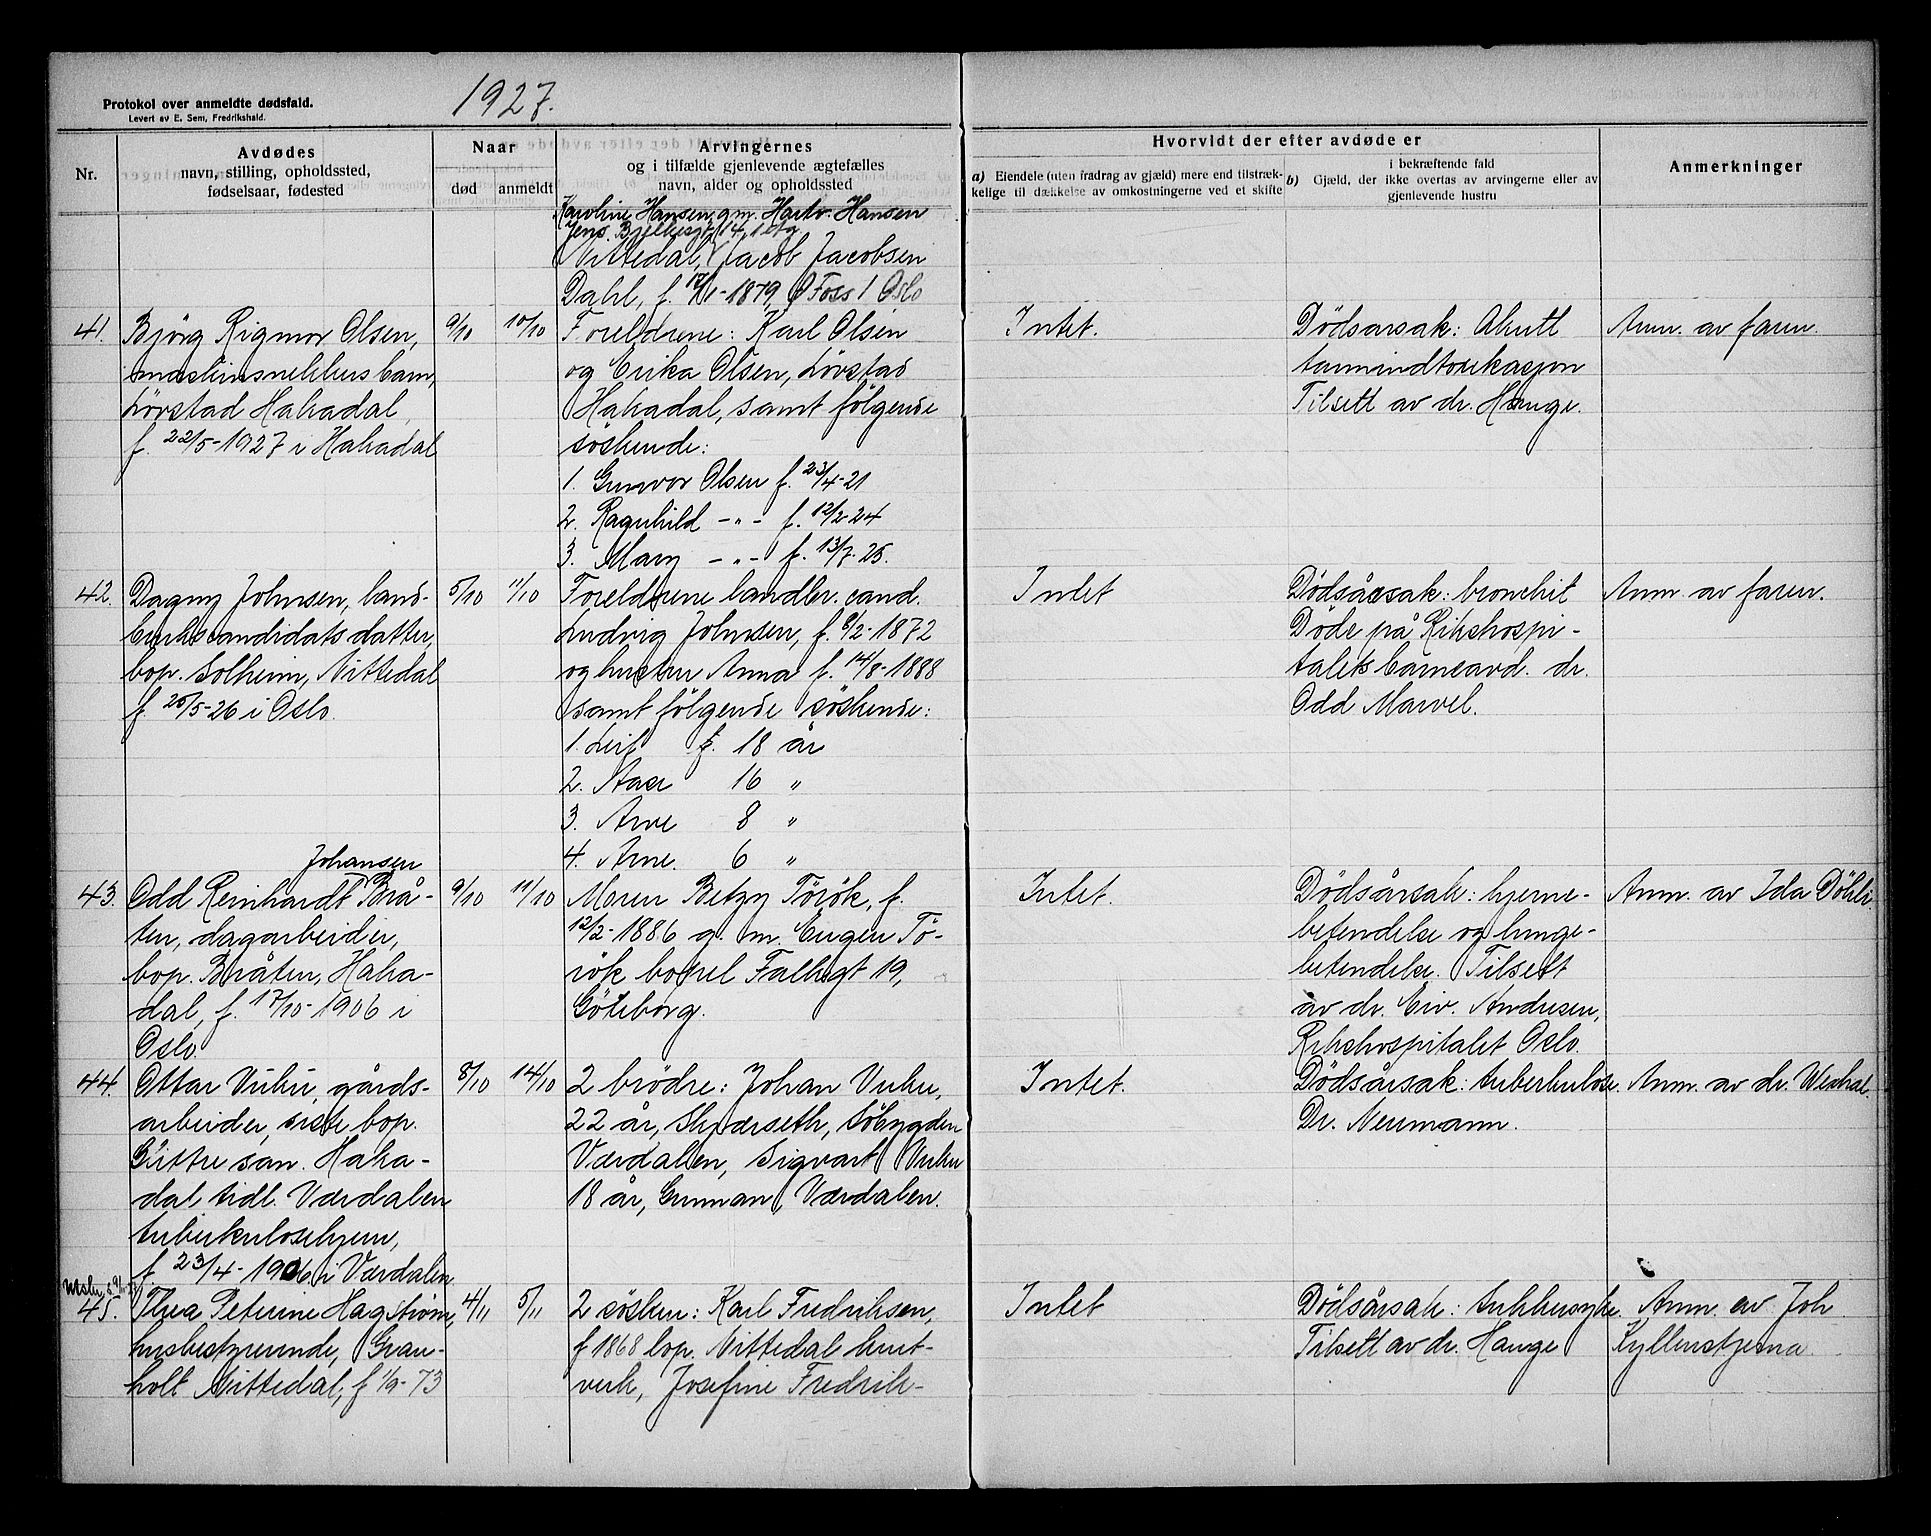 Protokol over anmeldte dødsfald.
Levert av E. Sem, Fredrikshald.
1927.
Nr.
Avdødes
navn, stilling, opholdssted,
fødselsaar, fødested
Naar
død
anmeldt
Arvingernes
og i tilfælde gjenlevende ægtefælles
navn, alder og opholdssted
Hvorvidt der efter avdøde er
a) Eiendele (uten fradrag av gjæld) mere end tilstræk-
kelige til dækkelse av omkostningerne ved et skifte
i bekræftende fald
b) Gjæld, der ikke overtas av arvingerne eller av
gjenlevende hustru
Anmerkninger
Karoline Hansen, gm. Hartv. Hansen
Jens Bjelkesgt 14, 1 etg.
Nittedal, Jacob Jacobsen
Dahl, f. 12/1-1879, Ø Foss 1 Oslo
41.
Bjørg Rigmor Olsen,
maskinsnekkers barn,
Lørstad Hakadal,
f. 22/5-1927 i Hakadal
9/10
10/10
Foreldrene: Karl Olsen
og Erika Olsen, Lørstad
Hakadal, samt følgende
søskende:
1. Gunvor Olsen f. 23/4-21
2. Ragnhild -"- f. 12/2-24
3. Mary -"- f. 13/7-25.
Intet.
Dödsarsak: Akutt
tarmindtoxikasjon
Tilsett av dr. Hauge.
Anm. av faren.
42.
Dagny Johnsen, land-
brukscandidats datter,
bop. Solheim, Nittedal
f. 25/5-26 i Oslo.
5/10
11/10
Foreldrene landbr. cand.
Ludvig Johnsen, f. 6/2-1872
og hustru Anna f. 14/8-1888
samt følgende søskende:
1. Leif f. 18 år
2. Aase 16 "
3. Arve 8 "
4. Arne. 6 "
Intet
Dödsårsak: bronchit
Døde på Rikshospi-
talets barneavd. dr.
Odd Marvel.
Anm. av faren.
43.
Johansen
Odd Reinhardt Brå-
ten, dagarbeider,
bop. Bråten, Haka-
dal, f. 17/10-1906 i
Oslo
9/10
11/10
Moren Betzy Török, f.
12/2-1886 g. m. Eugen Tö-
rök bopel Falkgt 19,
Göteborg.
Intet.
Dödsårsak: hjerne-
betendelse og lunge-
betendelse. Tilsett
av dr. Eiv. Andresen,
Rikshospitalet Oslo.
Anm. av Ida Döhli.
44.
Ottar Vuku, gårds-
arbeider, siste bop.
Glittre san. Haka-
dal, tidl. Værdalen
tuberkulosehjem,
f. 23/4-1906 i Værdalen
8/10
14/10
2 brödre: Johan Vuku,
22 år, Skjærseth, Söbygden
Værdalen, Sigvart Vuku
18 år, Grunnan, Værdalen.
Intet.
Dödsårsak: tuberkulose.
Dr. Neumann.
Anm. av dr.
45.
Thea Peterine Hagstrøm,
husbestyrerinde, Gran-
holt Nittedal, f 1/9-73
4/11
5/11
2 søsken: Karl Fredriksen,
f 1868 bop. Nittedal krut-
verk, Josefine Fredrik-
Intet
Dödsårsak: sukkersyke.
Tilsett av dr. Hauge
Anm. av Joh
Kyllenstjerna